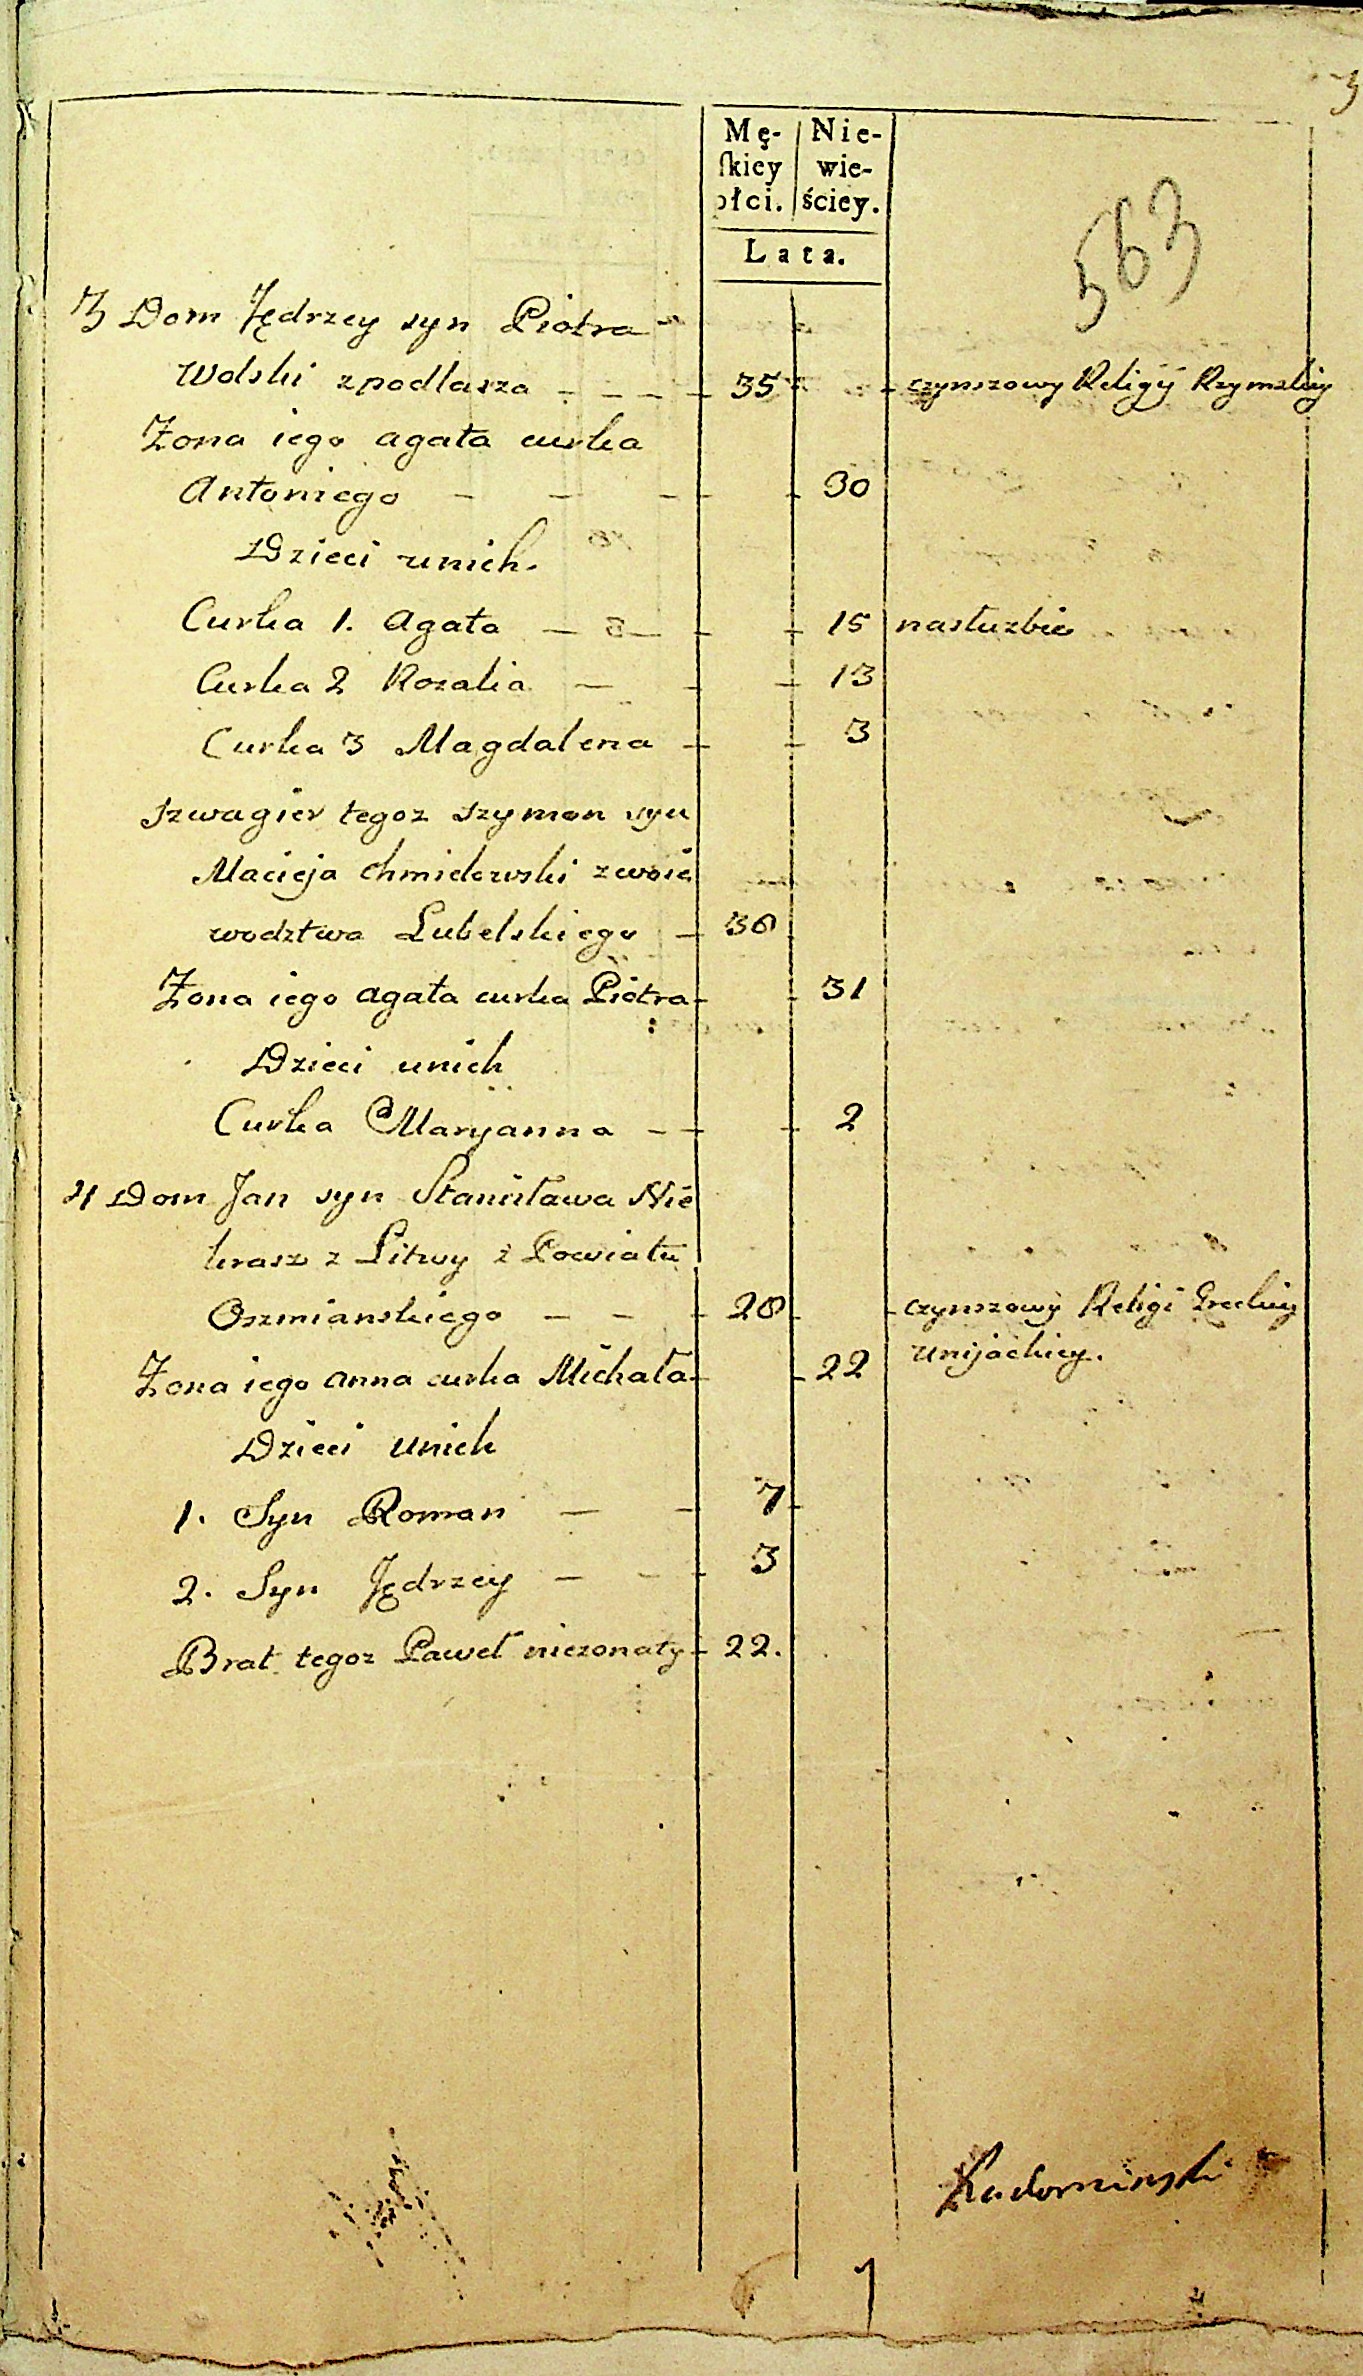 3
Mę- Nie-
ſkiey wie-
płci. ściey.
Lata.
563
3 Dom Jędrzey syn Piotra
Wolski zpodlasza 35 czynszowy Religij Rzymskiy
Zona iego agata curka
Antoniego 30
Dzieci unich.
Curka 1. Agata 15 nasłuzbie
Curka 2 Rozalia 13
Curka 3 Magdalena 3
szwagier tegoz szymon syn
Macieja Chmielewski zwoie
wodztwa Lubelskiego 36
Zona iego agata curka Piotra 31
Dzieci unich
Curka Maryanna 2
4 Dom Jan syn Stanisława Nie
krasz z Litwy z Powiatu
Oszmianskiego 28 czynszowy Religi Greckiy
Zona iego anna curka Michała 22 unijackiey.
Dzieci unich
1. Syn Roman 7
2. Syn Jędrzey 3
Brat tegoz Paweł niezonaty 22.
Radominski